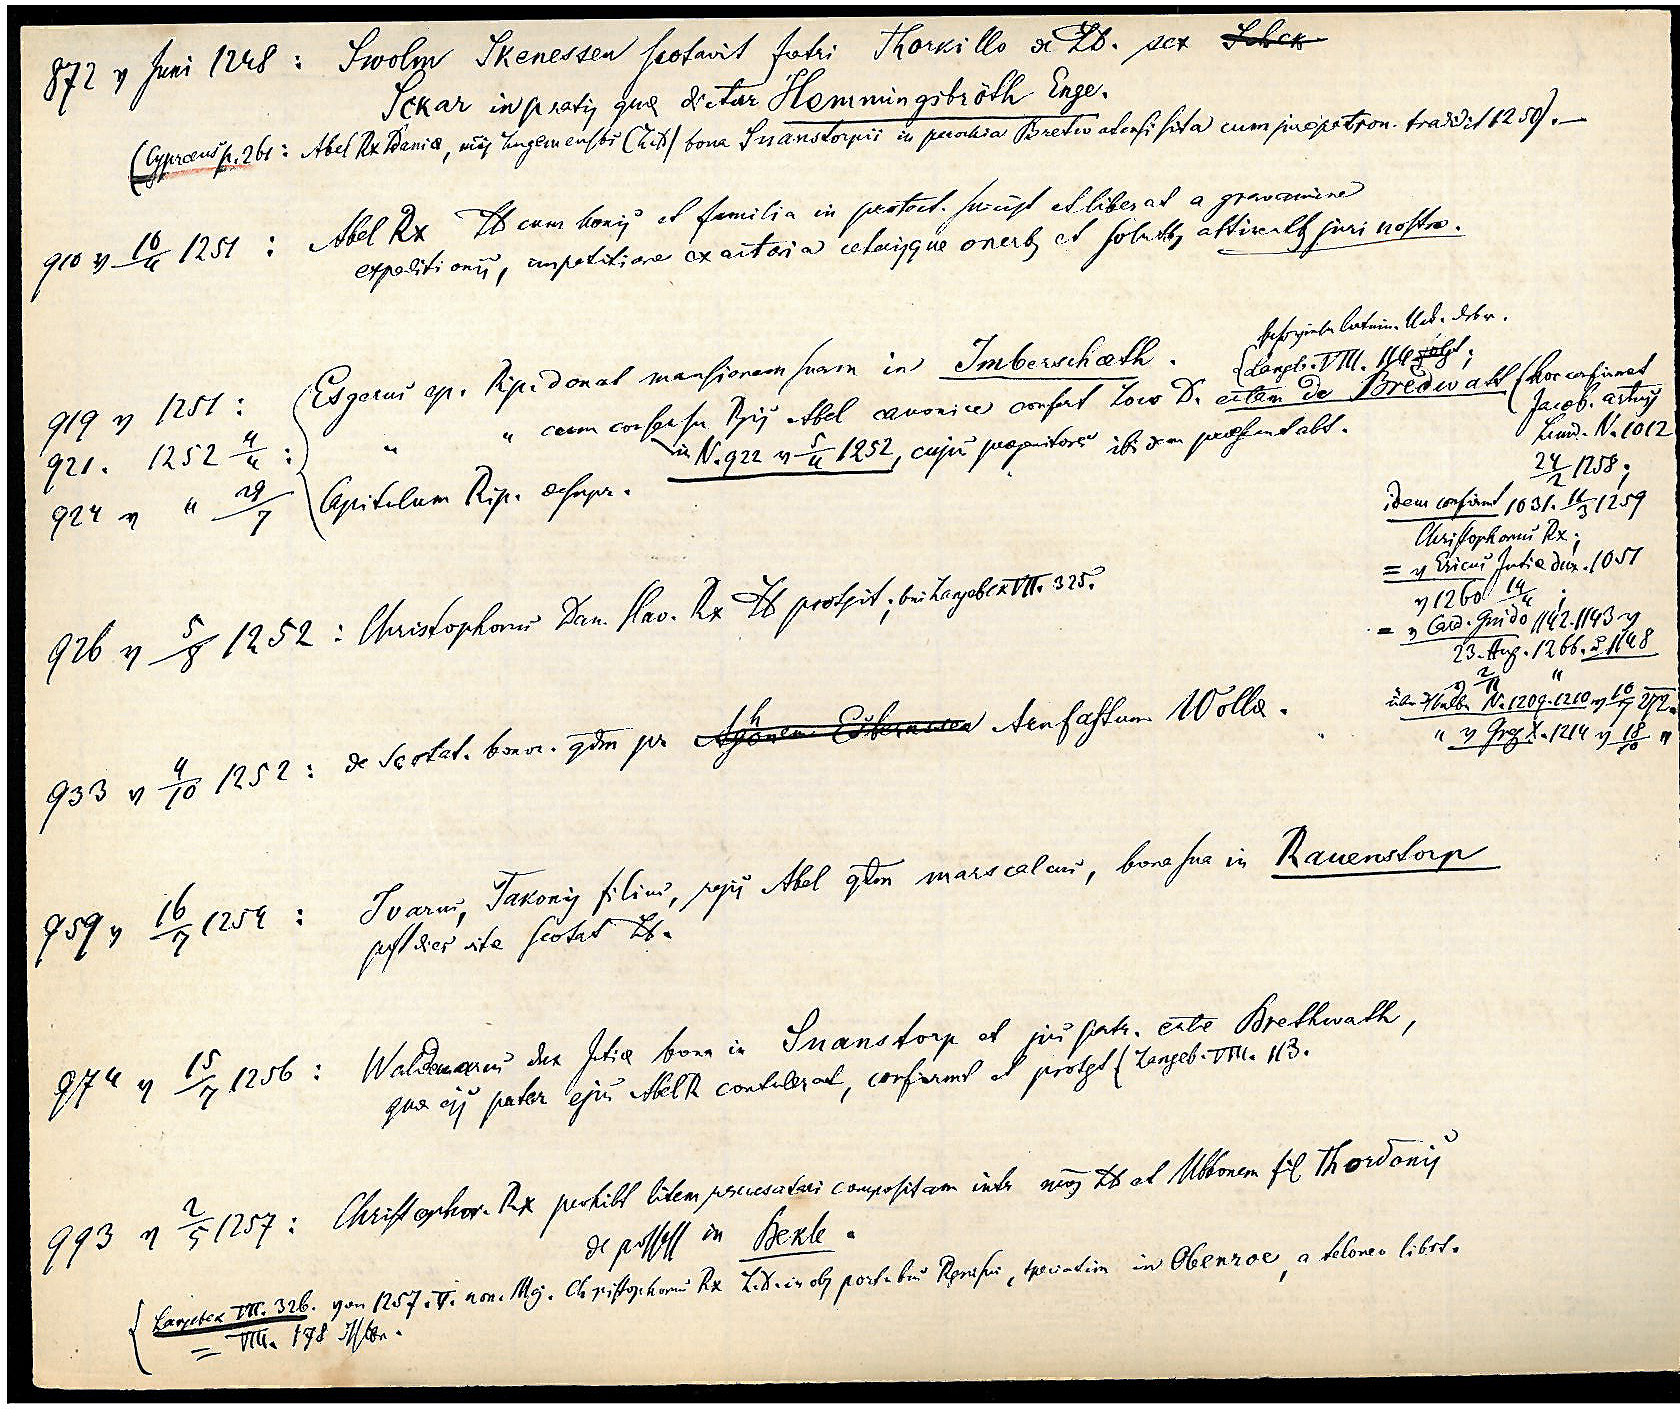 872 v Juni 1248 : Swolm Skenessen scotavit fratri Thorkillo de LD. sex
Sckar in pratis que dicitur Hemmingsbröth Enge.
(Cypraeus p. 261 : Abel Rx Daniæ, (LD) bona Suanstorpii in parochia Bretwatensi sita cum jure patron. tradidit 1250). —
910 v 16/4 1251 : Abel Rx LD cum bonis et familia in protect. suscipit et liberat a gravamine
expeditionis, impetitione exactoria ceterisque onerib et solutib attinentib juri nostro.
Langb. VIII. 116
919 v 1251 : Esgerus ep. Rip. donat mansionem suam in Imberschæth.
921. 1252 4/4 : " " cum consensu Regis Abel canonice confert Loco D. eccle~m de Bredwatt (hoc confirmat
Jacob. artus
in N. 922 v 5/4 1252, cujus progenitores ibidem præsentabt.
Lund. N. 1012
924 v " 29/7 Capitulum Rip. de supr.
24/2 1258;
idem confirmt 1031. 11/3 1259
Christophorus Rx;
= v Ericus Jutiæ dux. 1051
v 1260 14/4 ;
= v Card. Guido 1142. 1143 v
23. Aug. 1266. 1148
v 2/11 "
N. 1209. 1210 v 272.
" v Greg X. 1214 v 18/10 "
926 v 5/8 1252 : Christophorus Dan. Slav. Rx LD protgit; bei Langebek VII. 325.
933 v 4/10 1252 : de Scotat. bonor. qdm pr Arnfastum Wolla.
959 v 16/7 1254 : Ivarus, Takonis filius, regis Abel qdm marscalcus, bona sua in Rauenstorp
post dies vitæ scotat LD.
974 v 15/7 1256 : Waldemarus dux Jutiæ bona in Suanstorp et jus patr. eccle Brethwath,
quæ eis pater ejus Abel R contulerat, confirmt et protgt (Langeb. VIII. 113.
993 v 2/5 1257 : Christophor. Rx prohibt litem compositam inter LD et Ubbonem fil Thordonis
de possess in Bekle.
Langebek VIII. 326. von 1257. V. non. Maj. Christophorus Rx L.D. in portubus Regni sui, speciatim in Obenroe, a teloneo librt.
= VIII. 178